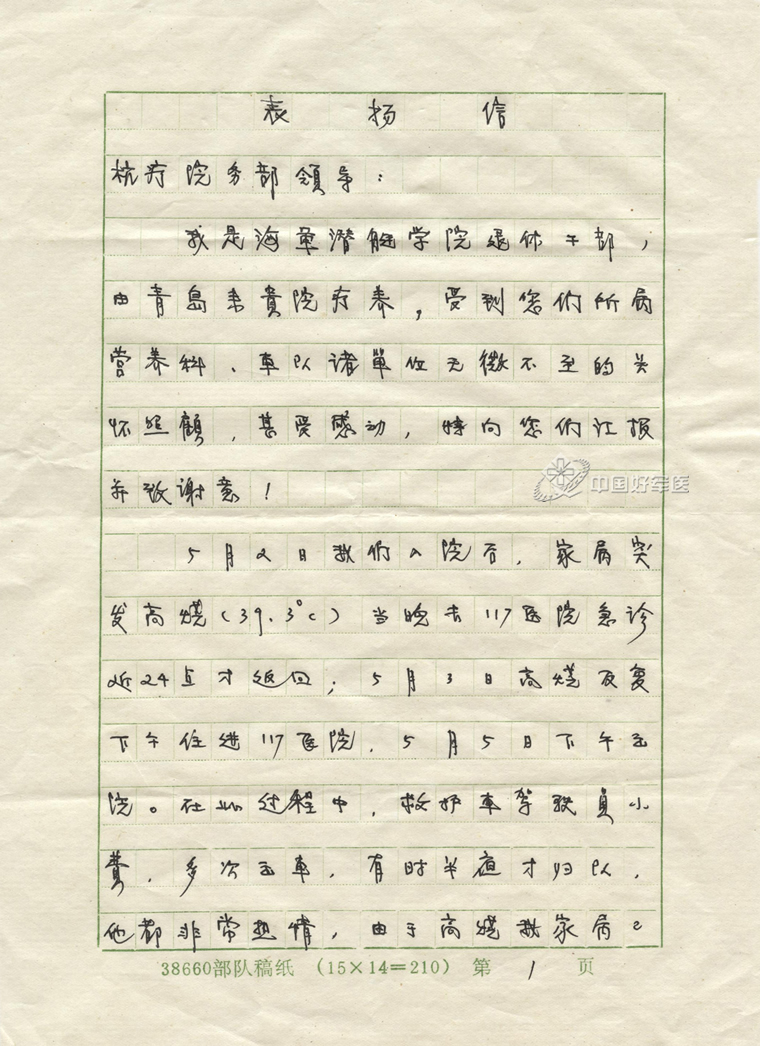 表扬信
杭疗院务部领导：
我是海軍潜艇学院退休干部，
由青島来貴院疗养，受到您们所属
营养科、車队诸單位无微不至的关
怀照顧，甚受感动，特向您们汇报
并致谢意！
中国好军医
5月2日我们入院后，家属突
发高燒(39.3°c)当晚去117医院急诊
近24点才返回；5月3日高燒反复
下午住进117医院．5月5日下午出
院。在此过程中，救护車驾驶員小
，多次出車．有时半夜才归队．
他都非常热情，由于高燒我家属已
38660部队稿纸 (15×14=210) 第 1 页